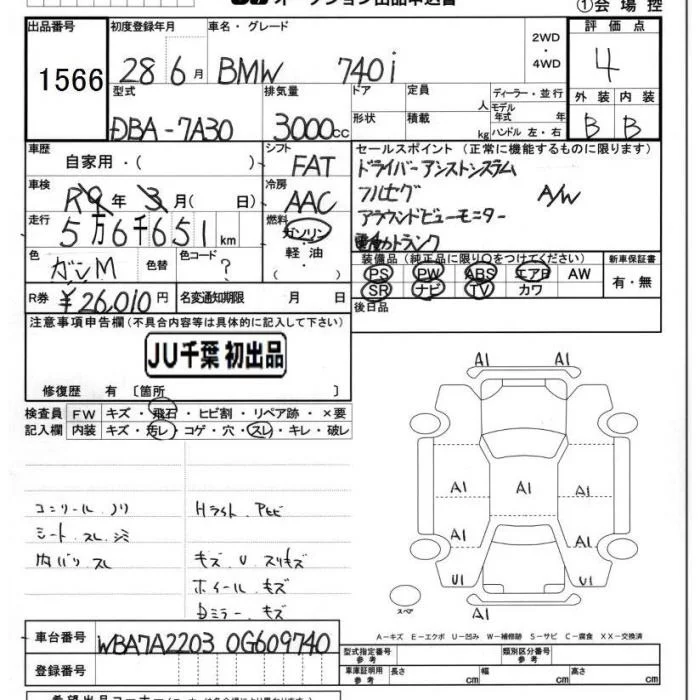 ①会場控
出品番号 初度登録年月 車名・グレード 2WD・4WD 評価点
1566 28 6月 BMW 740i 4
型式 排気量 ドア 定員 人 ディーラー・並行 外装 内装
DBA-7A30 3000cc 形状 積載 kg モデル年式 年 ハンドル 左・右 B B
車歴 自家用・( ) シフト FAT セールスポイント (正常に機能するものに限ります)
ドライバーアシストシステム
車検 R 年 3月( 日) 冷房 AAC フルセグ A/W
走行 5万6千651km 燃料 ガソリン・軽油・( ) アラウンドビューモニター
電動トランク
色 ガンM 色替 色コード ? 装備品 (純正品に限り○をつけてください) 新車保証書
PS PW ABS エアB AW 有・無
SR ナビ TV カワ
R券 ¥26,010円 名変通知期限 月 日 後日品
注意事項申告欄(不具合内容等は具体的に記入して下さい)
JU千葉 初出品
修復歴 有 〔箇所 〕
検査員 FW キズ・飛石・ヒビ割・リペア跡・×要
記入欄 内装 キズ・汚レ・コゲ・穴・スレ・キレ・破レ
A1 A1
A1 A1 A1
A1 A1
U1 U1
A1
スペア
シート スレ
内バリ スレ キズ U スリキズ
ホイール キズ
Dミラー キズ
A-キズ E-エクボ U-凹み W-補修跡 S-サビ C-腐食 XX-交換済
車台番号 WBA7A2203 0G609740
型式指定番号 参考 類別区分番号 参考
登録番号 車庫証明用 参考 長さ cm 幅 cm 高さ cm